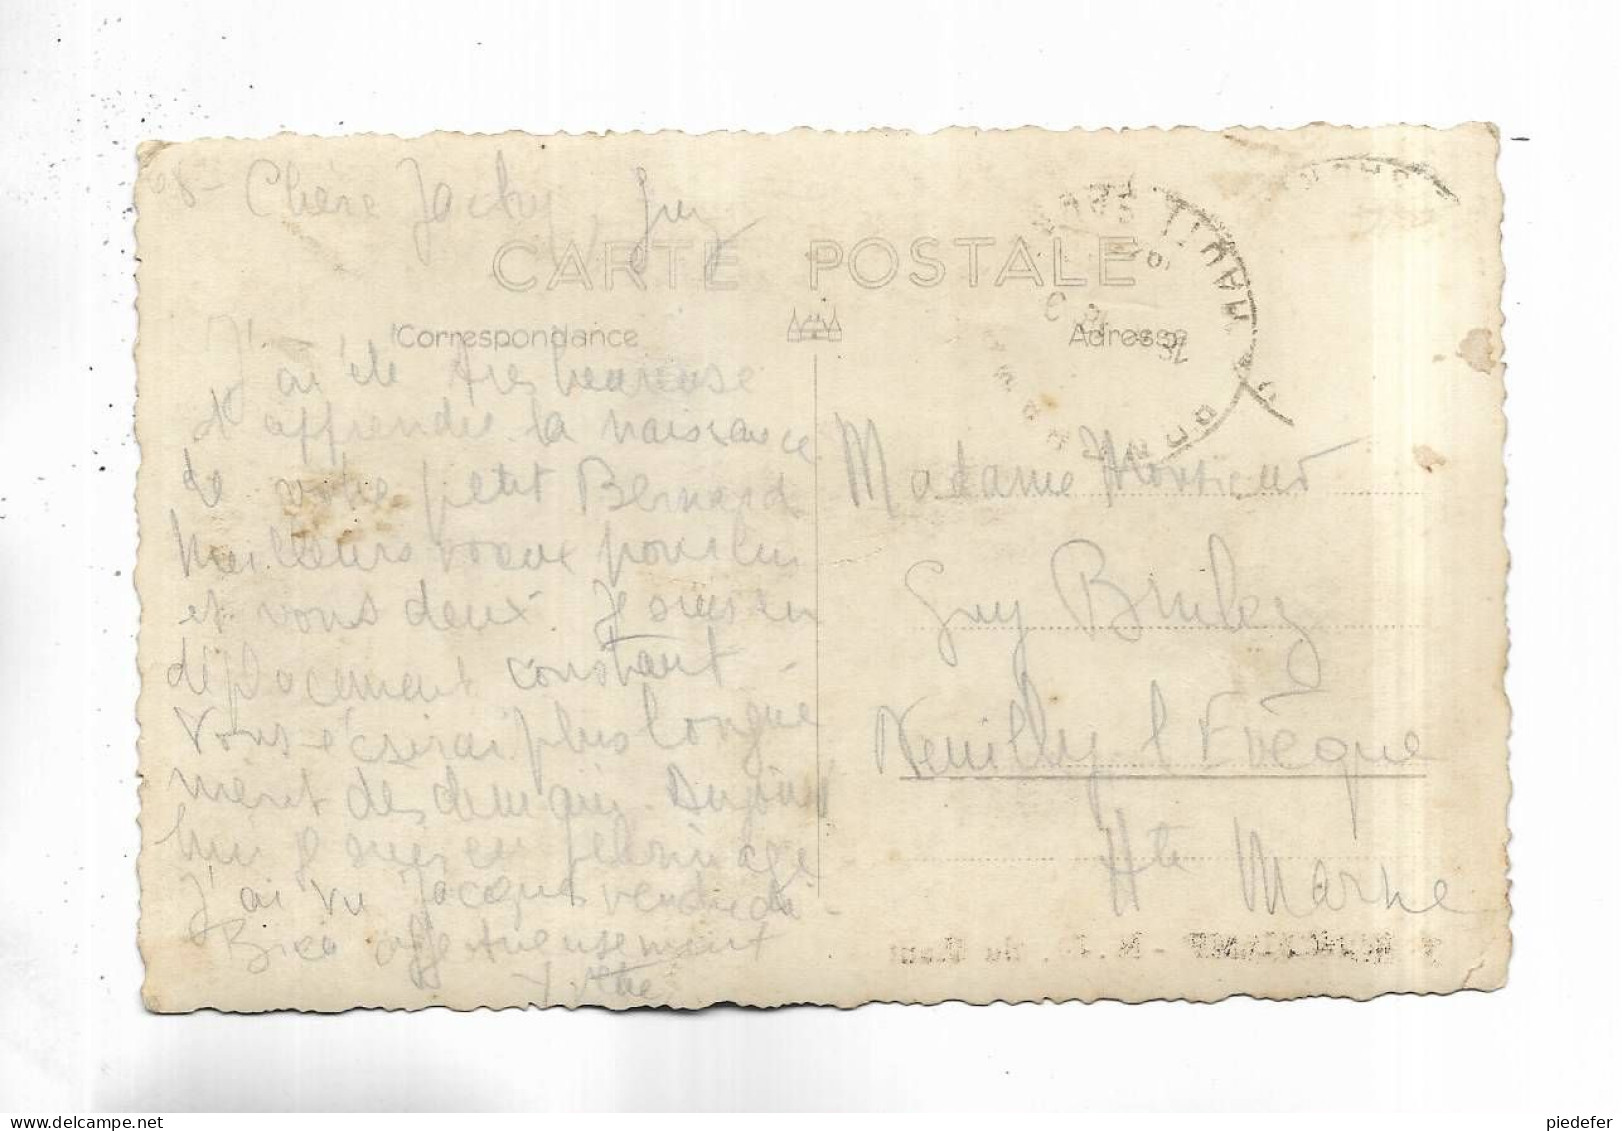 Chère Jacky, Guy
CARTE POSTALE
Correspondance
Adresse
J'ai été très heureuse
d'apprendre la naissance
de votre petit Bernard
Meilleurs voeux pour lui
et vous deux. Je suis en
déplacement constant
Vous écrirai plus longue
ment dès demain. Aujour
hui je suis en pélerinage
J'ai vu Jacques vendredi -
Bien affectueusement
Yvette
Madame Monsieur
Guy Bruley
Neuilly l'Evêque
Hte Marne
piedefer